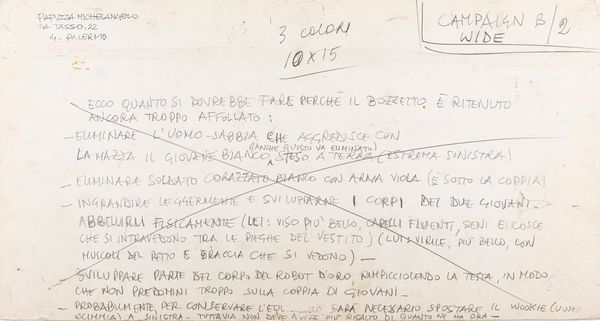 PAPUZZA MICHELANGELO
VIA TASSO, 22
PALERMO
3 COLORI
10X15
CAMPAIGN B/2
WIDE
ECCO QUANTO SI DOVREBBE FARE PERCHÉ IL BOZZETTO È RITENUTO
ANCORA TROPPO AFFOLLATO:
— ELIMINARE L'UOMO-SABBIA CHE AGGREDISCE CON
(ANCHE QUESTO VA ELIMINATO)
LA MAZZA IL GIOVANE BIANCO, STESO A TERRA (ESTREMA SINISTRA)
— ELIMINARE SOLDATO CORAZZATO BIANCO CON ARMA VIOLA (È SOTTO LA COPPIA)
— INGRANDIRE LEGGERMENTE E SVILUPPARNE I CORPI DEI DUE GIOVANI.
ABBELLIRLI FISICAMENTE (LEI: VISO PIU' BELLO, CAPELLI FLUENTI, SENI E COSCE
CHE SI INTRAVEDONO TRA LE PIEGHE DEL VESTITO) (LUI: VIRILE, PIU' BELLO, CON
MUSCOLI DEL PETTO E BRACCIA CHE SI VEDONO) —
— SVILUPPARE PARTE DEL CORPO DEL ROBOT D'ORO RIMPICCIOLENDO LA TESTA, IN MODO
CHE NON PREDOMINI TROPPO SULLA COPPIA DI GIOVANI —
— PROBABILMENTE, PER CONSERVARE L'EQUI SARÀ NECESSARIO SPOSTARE IL WOOKIE (UOMO
SCIMMIA) A SINISTRA - TUTTAVIA NON DEVE AVERE PIÙ RISALTO DI QUANTO NE HA ORA —